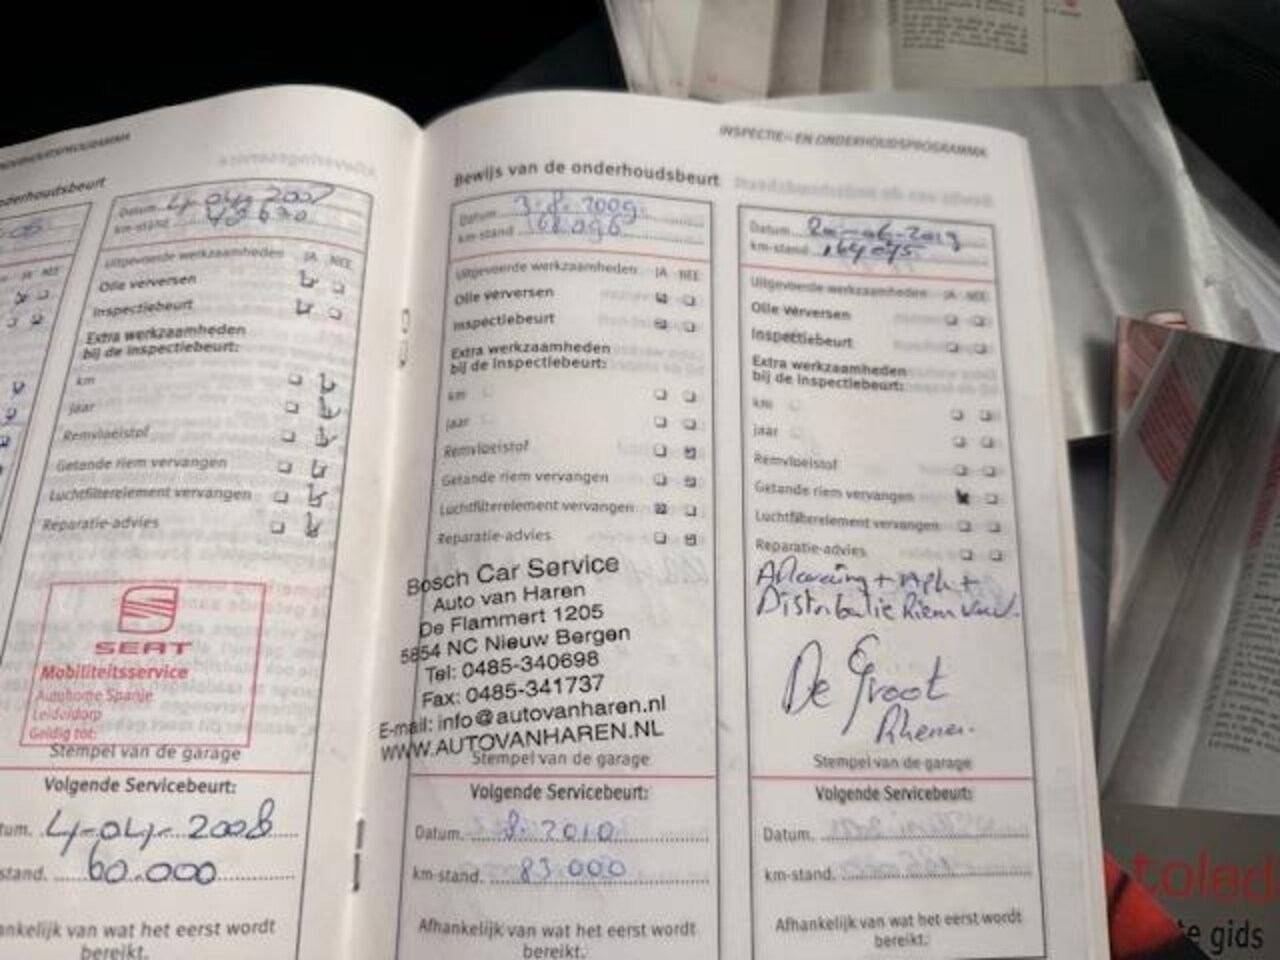 INSPECTIE- EN ONDERHOUDSPROGRAMMA
Datum. 4-04-2007
km-stand
Uitgevoerde werkzaamheden JA NEE
Olie verversen
Inspectiebeurt
Extra werkzaamheden
bij de inspectiebeurt:
km
jaar
Remvloeistof
Getande riem vervangen
Luchtfilterelement vervangen
Reparatie-advies
SEAT
Mobiliteitsservice
Autohome Spanje
Leiderdorp
Geldig tot:
Stempel van de garage
Volgende Servicebeurt:
4-04-2008
stand. 60.000
Afhankelijk van wat het eerst wordt
bereikt.
Bewijs van de onderhoudsbeurt
Datum 3.8.2009
km-stand 68.096
Uitgevoerde werkzaamheden JA NEE
Olie verversen
Inspectiebeurt
Extra werkzaamheden
bij de inspectiebeurt:
km
jaar
Remvloeistof
Getande riem vervangen
Luchtfilterelement vervangen
Reparatie-advies
Bosch Car Service
Auto van Haren
De Flammert 1205
5854 NC Nieuw Bergen
Tel: 0485-340698
Fax: 0485-341737
E-mail: info@autovanharen.nl
WWW.AUTOVANHAREN.NL
Stempel van de garage
Volgende Servicebeurt:
Datum. 8.2010
km-stand. 83.000
Afhankelijk van wat het eerst wordt
bereikt.
Datum. 20-06-2019
km-stand 164075
Uitgevoerde werkzaamheden JA NEE
Olie verversen
Inspectiebeurt
Extra werkzaamheden
bij de inspectiebeurt:
km
jaar
Remvloeistof
Getande riem vervangen
Luchtfilterelement vervangen
Reparatie-advies
Distributie Riem
De Groot
Rhenen.
Stempel van de garage
Volgende Servicebeurt:
Datum.
km-stand.
Afhankelijk van wat het eerst wordt
bereikt.
toled
te gids